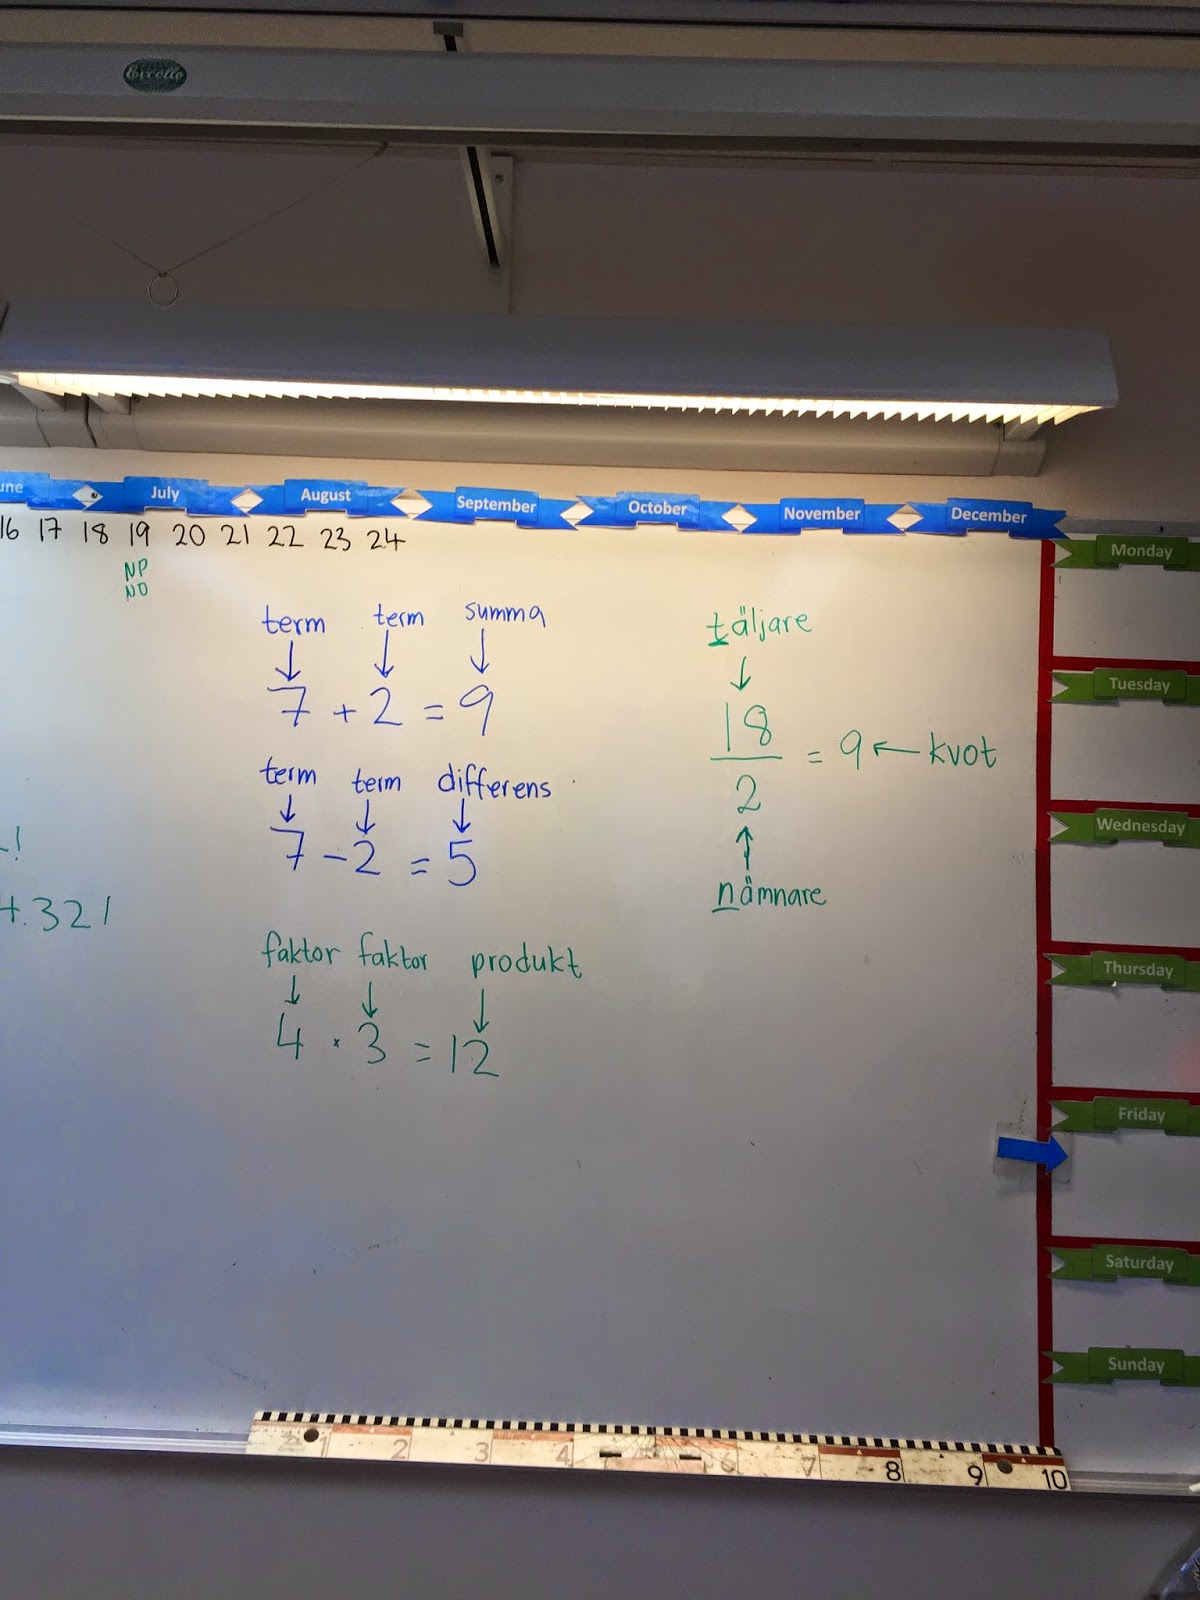 Excello
July August September October November December
16 17 18 19 20 21 22 23 24
NP
NO
term term summa
7 + 2 = 9
term term differens
7 - 2 = 5
faktor faktor produkt
4 · 3 = 12
täljare
18
2
= 9 ← kvot
nämnare
4.321
Monday
Tuesday
Wednesday
Thursday
Friday
Saturday
Sunday
1 2 3 4 6 7 8 9 10